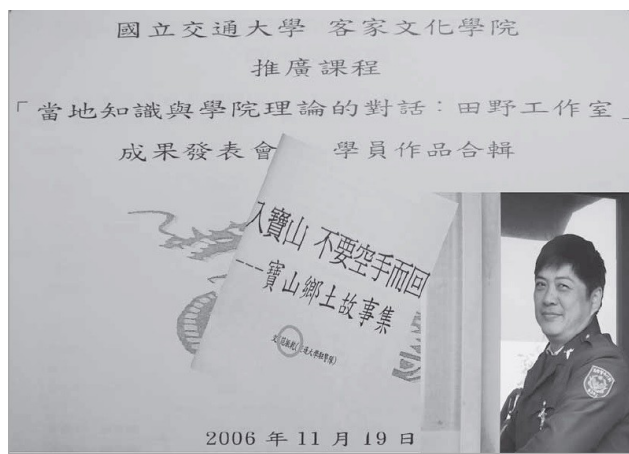 國立交通大學 客家文化學院
推廣課程
「當地知識與學院理論的對話：田野工作室」
成果發表會 學員作品合輯
入寶山 不要空手而回
---寶山鄉土故事集
2006 年 11 月 19 日